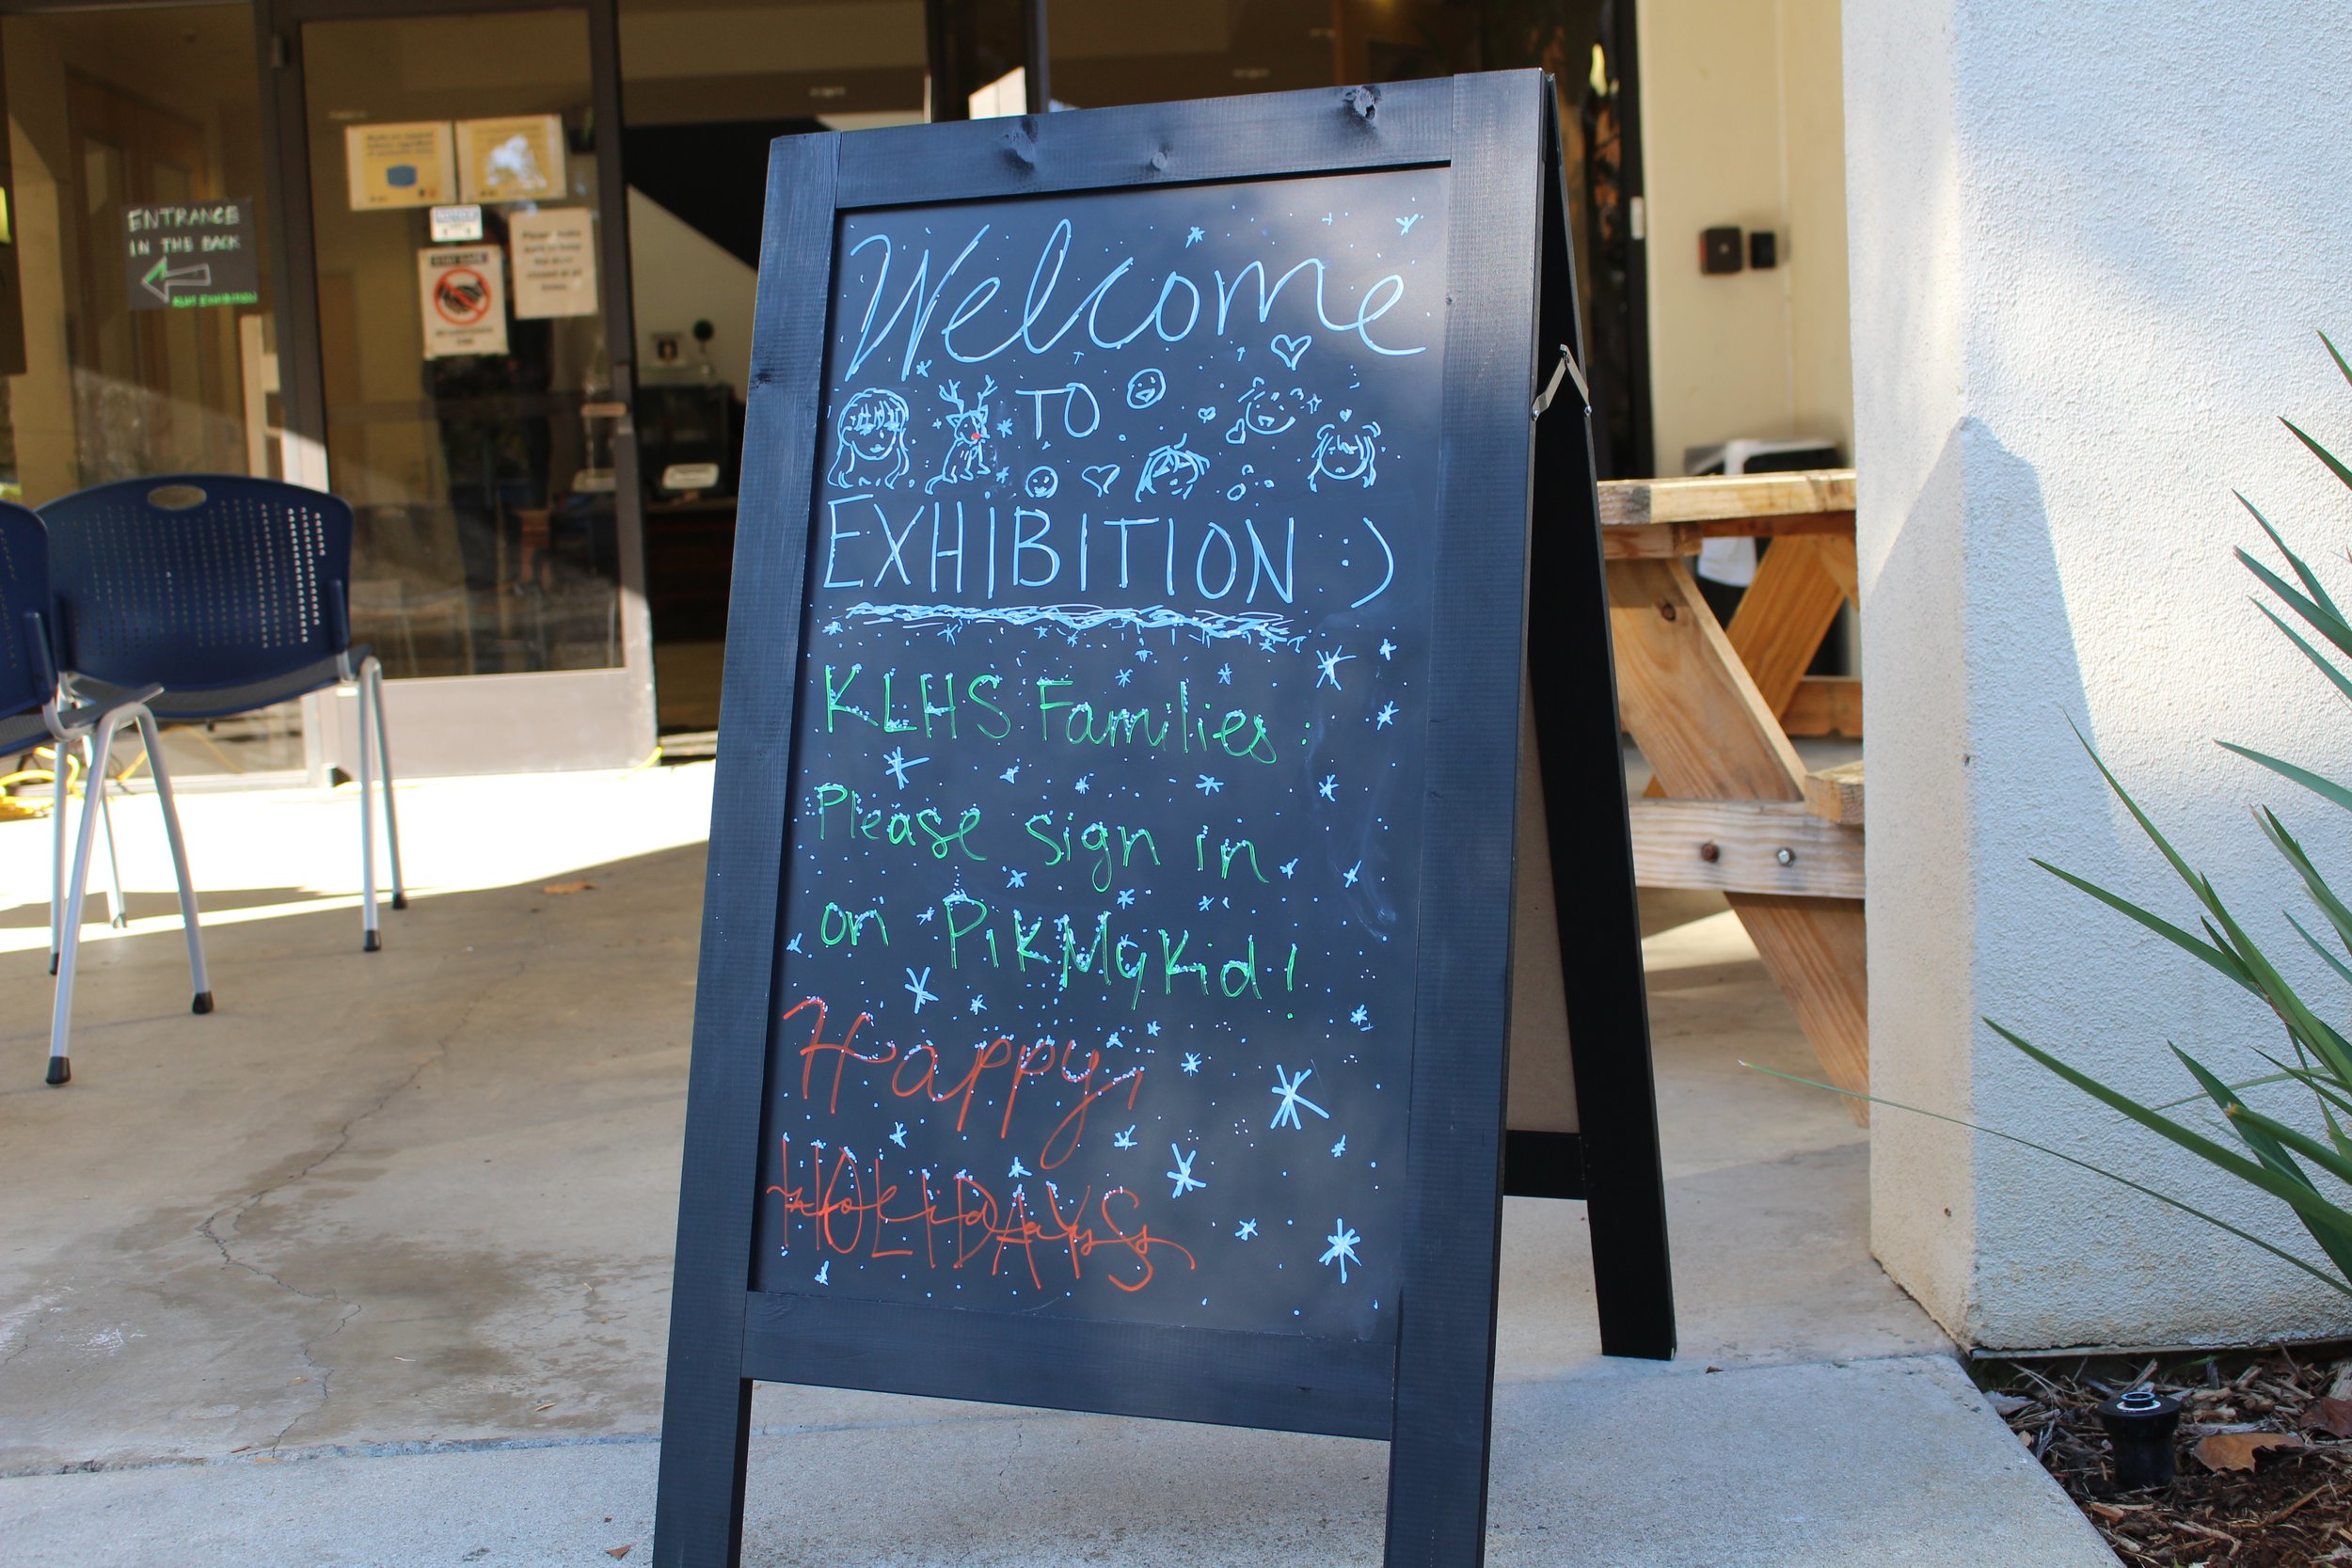 Welcome
TO
EXHIBITION :)
KLHS Families:
Please sign in
on PikMyKid!
Happy,
HOLIDAYS
Holidays
ENTRANCE
IN THE BACK
KLHS EXHIBITION